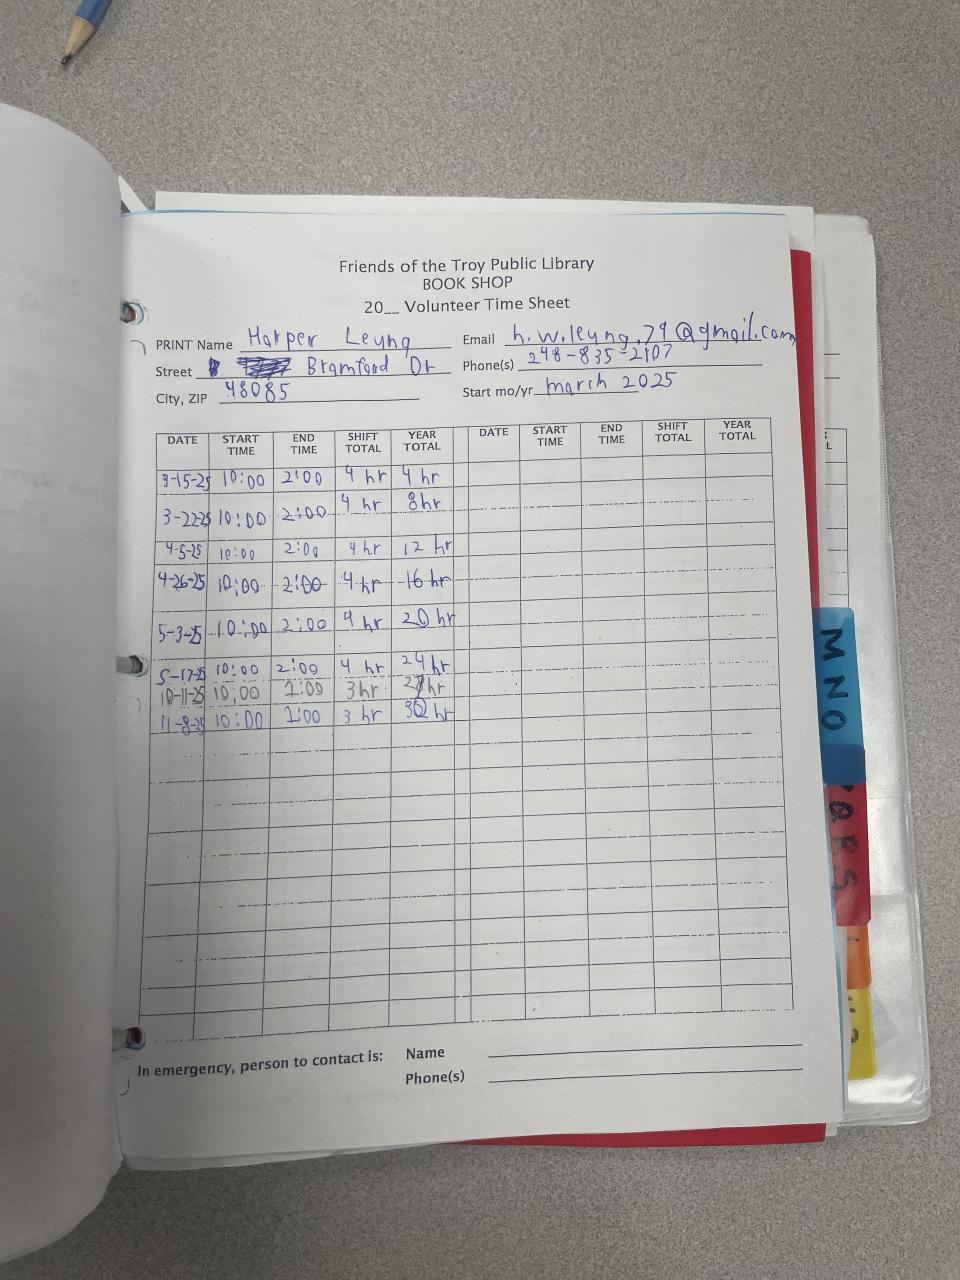 Friends of the Troy Public Library
BOOK SHOP
20__ Volunteer Time Sheet
PRINT Name Harper Leung Email h.w.leung.79@gmail.com
Street Bramford Dr Phone(s) 248-835-2107
City, ZIP 48085 Start mo/yr march 2025
DATE START TIME END TIME SHIFT TOTAL YEAR TOTAL DATE START TIME END TIME SHIFT TOTAL YEAR TOTAL
3-15-25 10:00 2:00 4 hr 4 hr
3-22-25 10:00 2:00 4 hr 8hr
4-5-25 10:00 2:00 4 hr 12 hr
4-26-25 10:00 2:00 4 hr 16 hr
5-3-25 10:00 2:00 4 hr 20 hr
5-17-25 10:00 2:00 4 hr 24 hr
10-11-25 10:00 1:00 3hr 27hr
11-8-25 10:00 1:00 3 hr 30 hr
In emergency, person to contact is: Name
Phone(s)
M N O
P Q R S